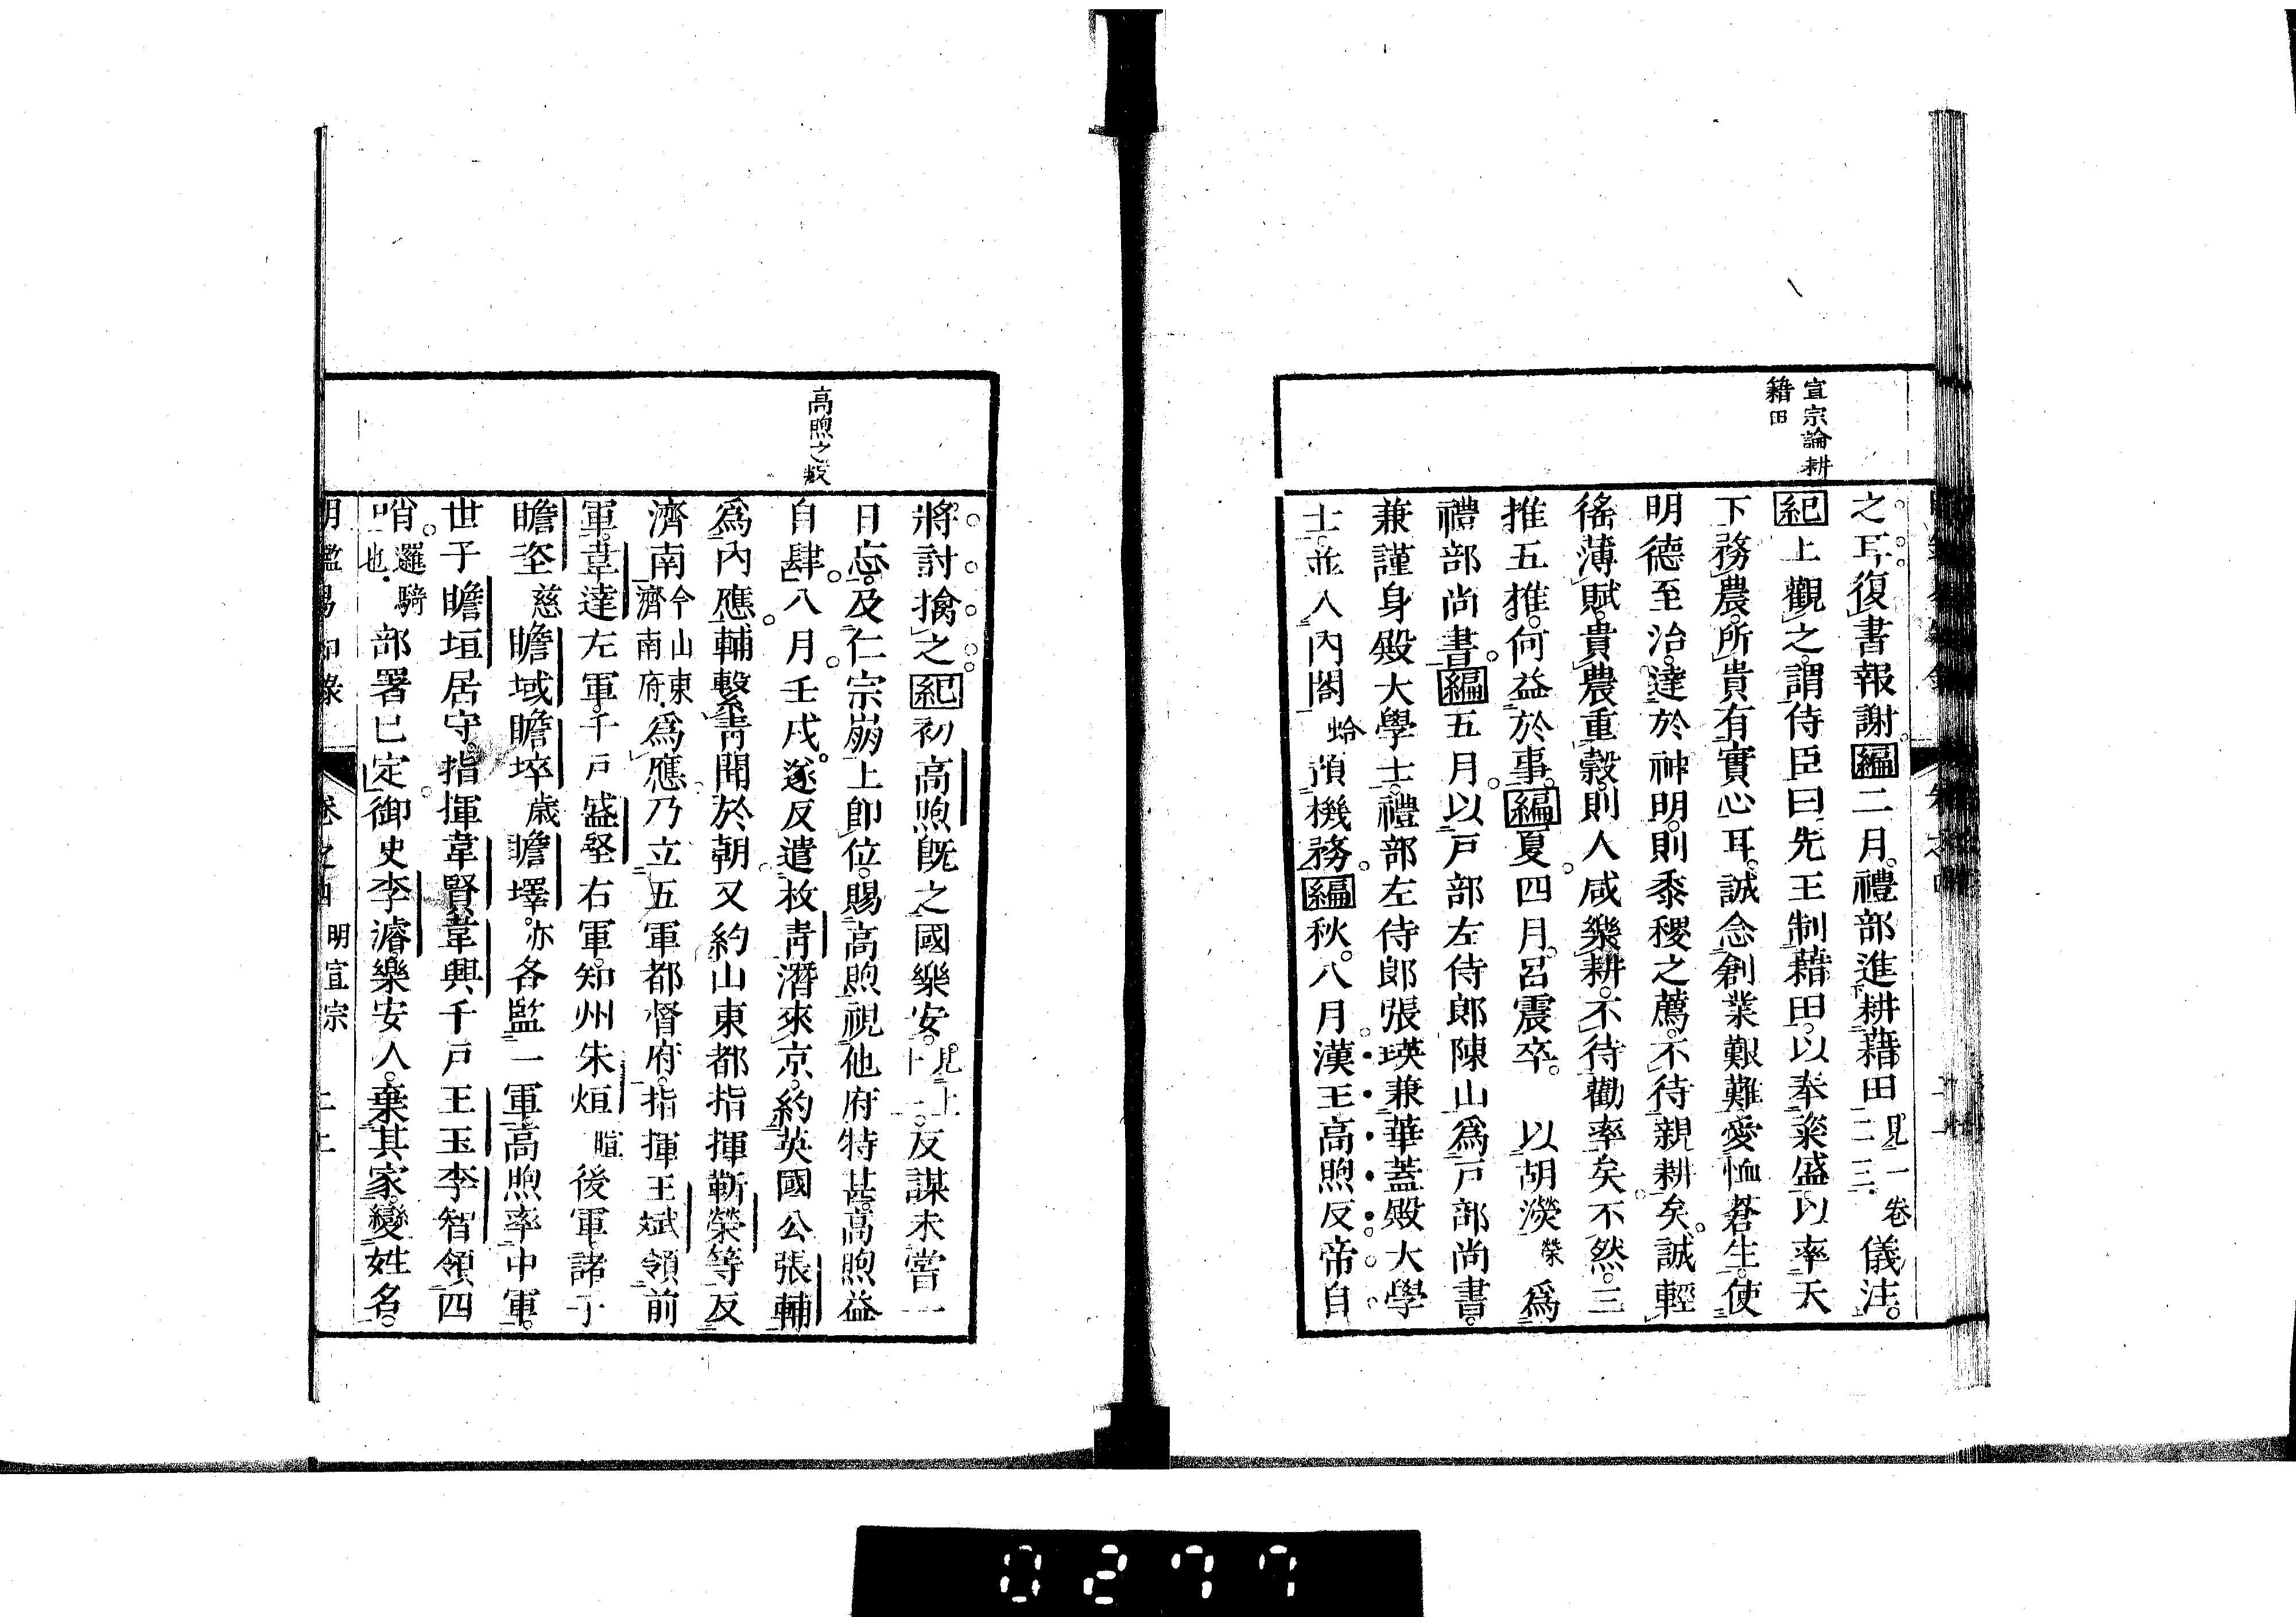 宣宗論耕
籍田
之耳復書報謝編二月禮部進耕藉田見一卷二三儀注
紀上觀之謂侍臣曰先王制藉田以奉粢盛以率天
下務農所貴有實心耳誠念創業艱難愛恤蒼生使
明德至治達於神明則黍稷之薦不待親耕矣誠輕
徭薄賦貴農重穀則人咸樂耕不待勸率矣不然三
推五推何益於事編夏四月呂震卒 以胡濙榮爲
禮部尚書編五月以戸部左侍郎陳山爲戸部尚書
兼謹身殿大學士禮部左侍郎張瑛兼華蓋殿大學
士並入內閣 預機務編秋八月漢王高煦反帝自
高煦之叛
將討擒之紀初高煦既之國樂安見上反謀未嘗一
日忘及仁宗崩上卽位賜高煦視他府特甚高煦益
自肆八月壬戌遂反遣枚靑潛來京約英國公張輔
爲內應輔繫靑聞於朝又約山東都指揮靳榮等反
濟南今山東濟南府爲應乃立五軍都督府指揮王斌領前
軍韋達左軍千戸盛堅右軍知州朱烜暄後軍諸子
瞻坙慈瞻域瞻埣歲瞻墿亦各監一軍高煦率中軍
世子瞻垣居守指揮韋賢韋興千戸王玉李智領四
哨邏騎也部署已定御史李濬樂安人棄其家變姓名
明鑑易知錄 卷之四 明宣宗
0277